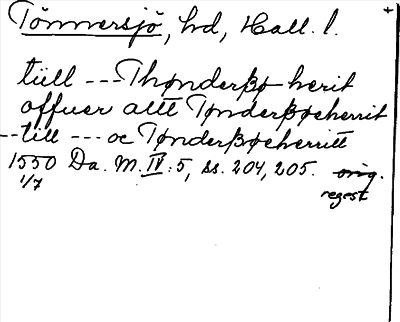 Tönnersjö, hd, Hall. l.
tiill --- Thønderßø herit
offuer altt Tønderßøeherrit
-- till --- oc Tønderßøeherritt
1550 Da. M. IV:5, ss. 204, 205. orig.
1/7 regest